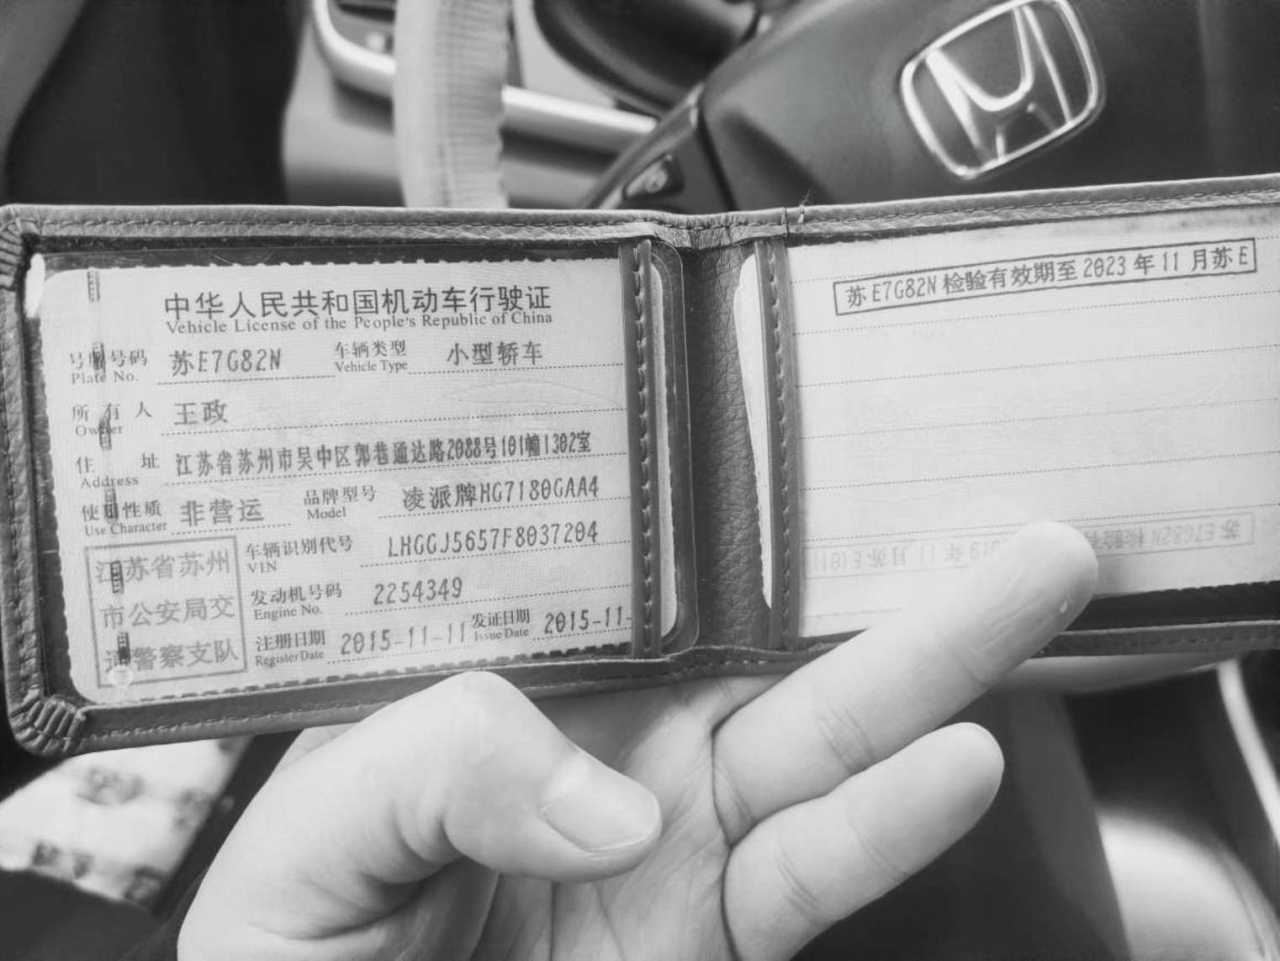 中华人民共和国机动车行驶证
Vehicle License of the People's Republic of China
号牌号码 苏E7G82N 车辆类型 小型轿车
Plate No. Vehicle Type
所有人 王政
Owner
住址 江苏省苏州市吴中区郭巷通达路2088号101幢1302室
Address
使用性质 非营运 品牌型号 凌派牌HG7180GAA4
Use Character Model
车辆识别代号 LHGGJ5657F8037204
VIN
发动机号码 2254349
Engine No.
注册日期 2015-11-11 发证日期 2015-11-
Register Date Issue Date
江苏省苏州
市公安局交
通警察支队
苏E7G82N检验有效期至2023年11月苏E